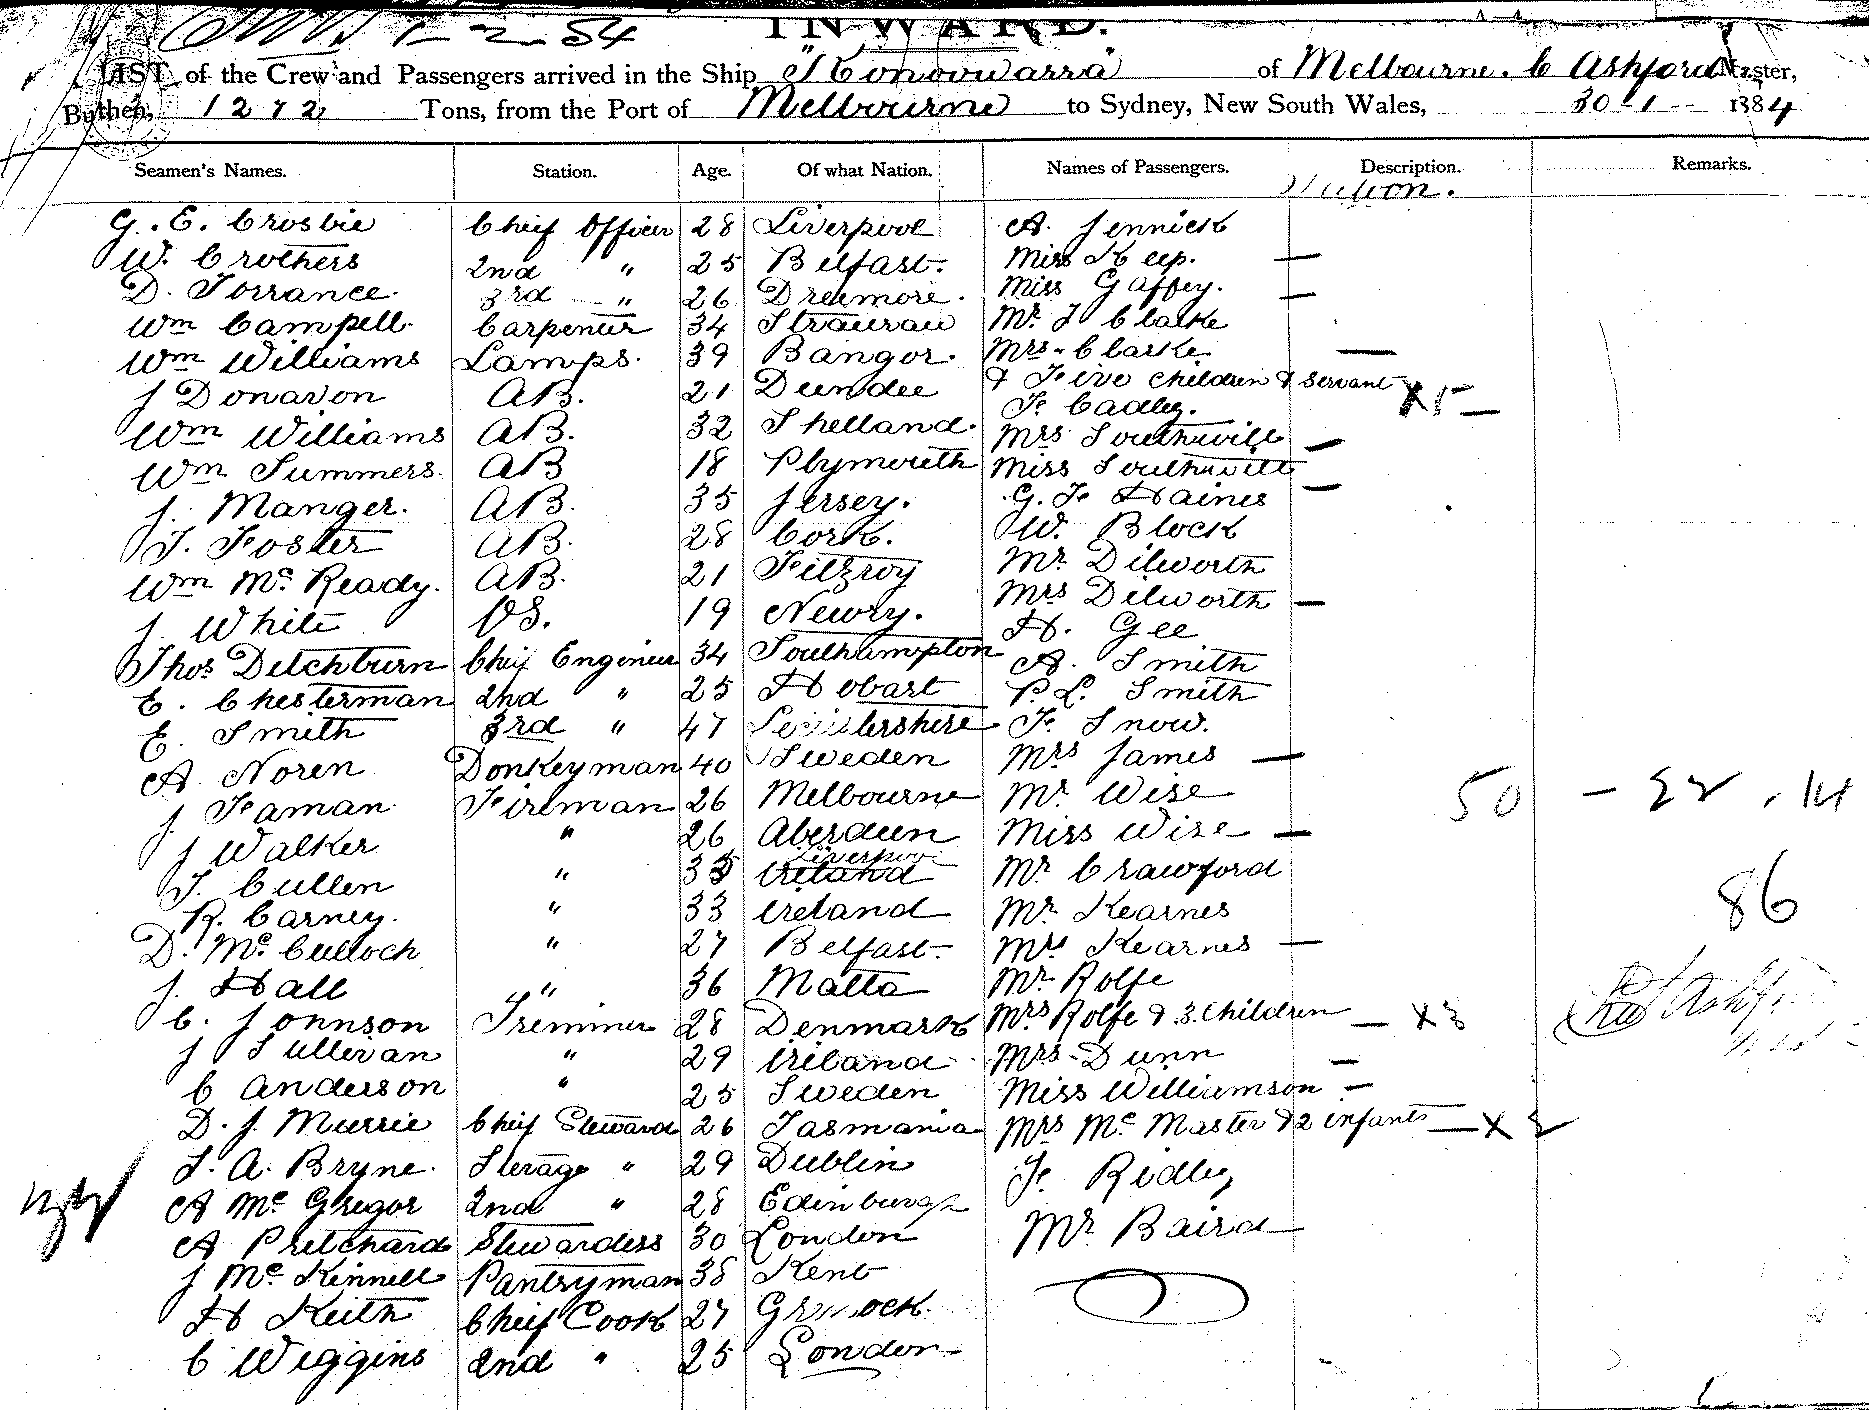 1-2-84
INWARD.
LIST of the Crew and Passengers arrived in the Ship "Konoowarra" of Melbourne. C Ashford Master,
Burthen, 1272 Tons, from the Port of Melbourne to Sydney, New South Wales, 30-1- 1884
Seamen's Names. Station. Age. Of what Nation. Names of Passengers. Description. Remarks.
Saloon.
G. E. Crosbie Chief Officer 28 Liverpool A. Jennick
W. Crothers 2nd " 25 Belfast. Miss Keep. —
D. Torrance. 3rd " 26 Dreemore. Miss Gaffey. —
Wm Campell. Carpenter 34 Stranrau Mr. J Clarke
Wm Williams Lamps. 39 Bangor. Mrs. Clarke —
J Donavon AB. 21 Dundee & Five children & servant X 5 —
F. Cadley.
Wm Williams AB. 32 Shelland. Mrs Southwill —
Wm Summers. AB 18 Plymouth Miss Southwill —
J. Manger. AB. 35 Jersey. G. F. Haines
T. Foster AB. 28 Cork. W. Block
Wm Mc Ready. AB. 21 Fitzroy Mr Dilworth
J. White OS. 19 Newry. Mrs Dilworth —
H. Gee
Thos Ditchburn Chif Engineer 34 Southampton A. Smith
E. Chesterman 2nd " 25 Hobart P. L. Smith
E. Smith 3rd " 47 F. Snow.
A. Noren Donkeyman 40 Sweden Mrs James —
J. Faman Fireman 26 Melbourne Mr Wise 50 - 22 . 14
J Walker " 26 Aberdeen Miss Wise —
T. Cullen " 35 Liverpool Ireland Mr Crawford
R. Carney. " 33 Ireland Mr Kearnes 86
D. Mc Culloch " 27 Belfast. Mrs Kearnes —
J. Hall " 36 Malta Mr Rolfe
C. Johnson Tremmer 28 Denmark Mrs Rolfe & 3 Children — X 3
J Sullivan " 29 Ireland Mrs. Dunn —
C Anderson " 25 Sweden Miss Williamson —
D. J. Murrie Chief Steward 26 Tasmania Mrs Mc Master & 2 infants — X 2
T. A. Bryne. Sterage " 29 Dublin F. Ridley
A Mc Gregor 2nd " 28 Edinburgh
A Pritchard Stewardess 30 London Mr Baird
J Mc Kinnell Pantryman 38 Kent
H Keith Chief Cook 27
C Wiggins 2nd " 25 London